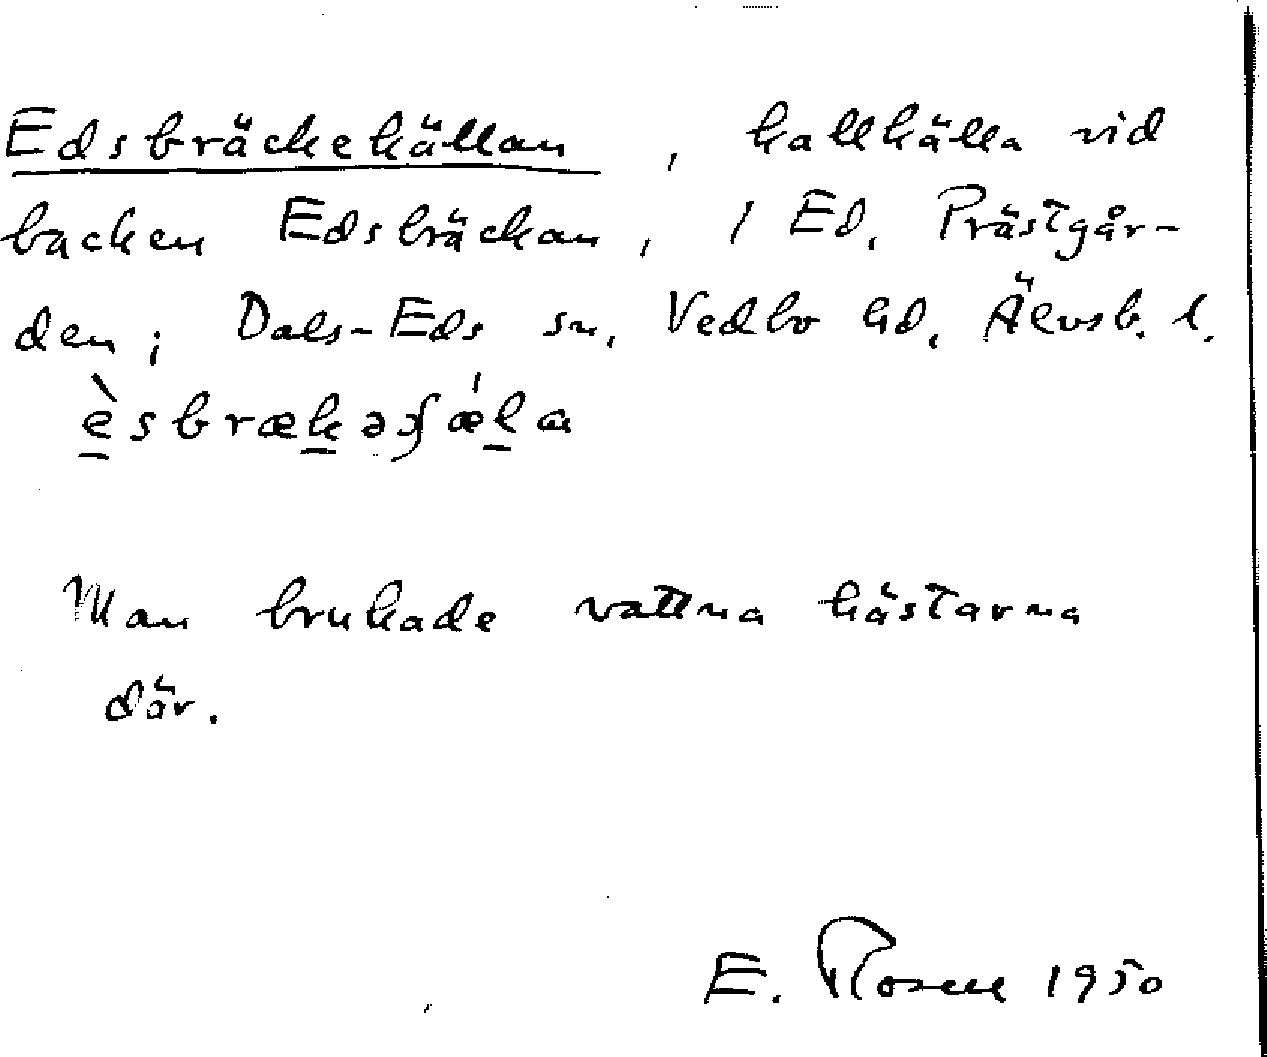 Edsbräckekällan, kallkälla vid
backen Edsbräckan, 1 Ed, Prästgår-
den, Dals-Eds sn, Vedbo hd, Älvsb. l.
Man brukade vattna hästarna
där.
E. Rosen 1950